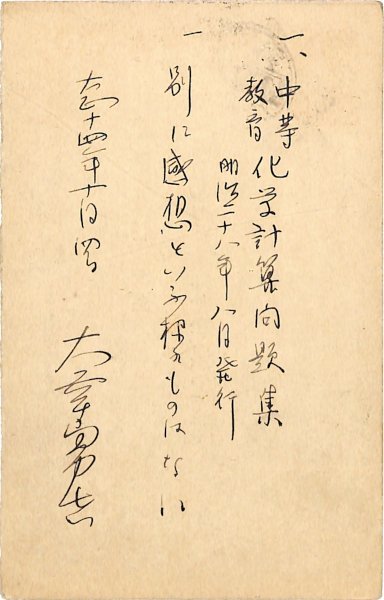 一、中等教育化学計算問題集
明治二十八年八月発行
一 別に感想といふ様のものはなし
大正十四年十月四日
大幸勇吉